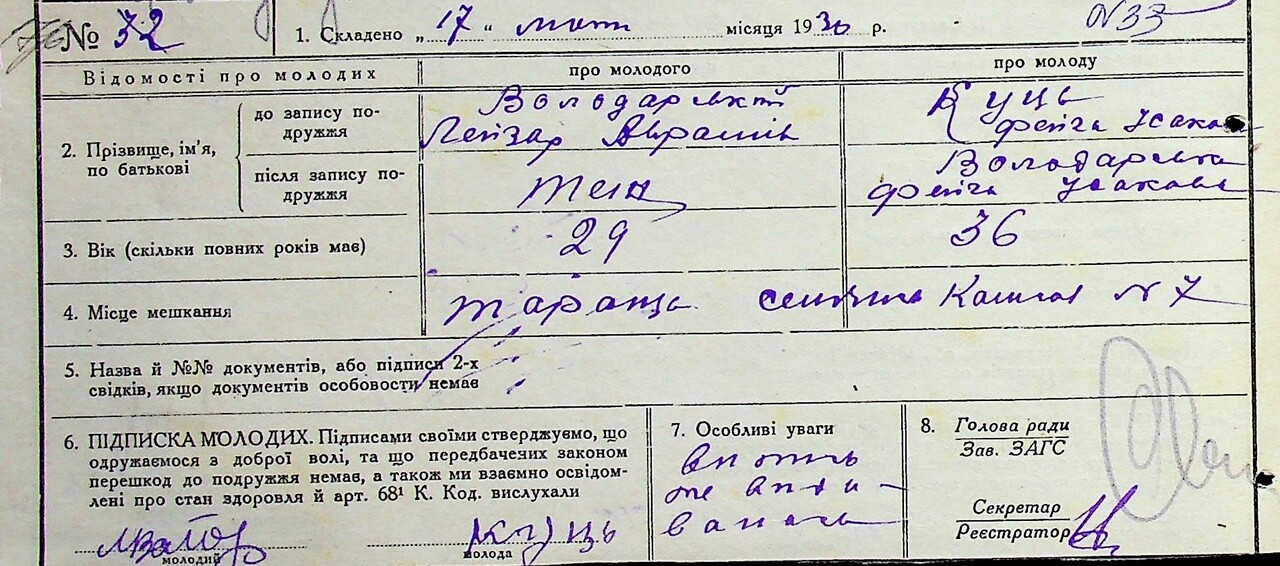 № 32
1. Складено „ 17 “ мот місяця 1930 р.
N33
Відомості про молодих
про молодого
про молоду
2. Прізвище, ім'я, по батькові
до запису по-
дружжя
Володарський
Лейзар Аврамів
Куць
Фейга Усакова
після запису по-
дружжя
теж
Володарська
Фейга Усакова
3. Вік (скільки повних років має)
29
36
4. Місце мешкання
Тараща
N 7
5. Назва й №№ документів, або підписи 2-х
свідків, якщо документів особовости немає
6. ПІДПИСКА МОЛОДИХ. Підписами своїми стверджуємо, що
одружаємося з доброї волі, та що передбачених законом
перешкод до подружжя немає, а також ми взаємно освідом-
лені про стан здоровля й арт. 68¹ К. Код. вислухали
молодий
КУЦЬ
молода
7. Особливі уваги
8. Голова ради
Зав. ЗАГС
Секретар
Реєстратор